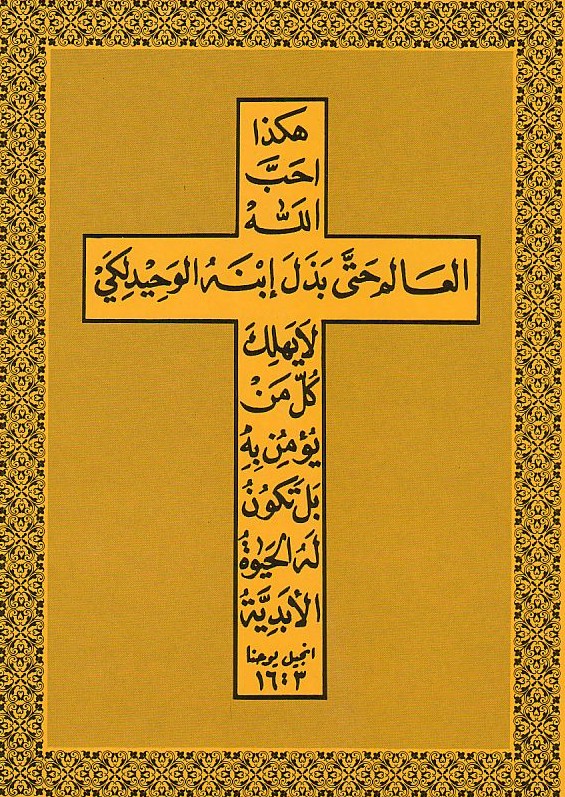 هكذا
احَبَّ
اللهْ
العَالم حَتَّى بَذَلَ إبْنَهُ الوَحِيْدِ لِكَيْ
لاَيَهلِكَ
كُلّ مَنْ
يُؤمِنُ بِهِ
بَل تَكوُنُ
لَهُ الحَيَوٰةُ
الأَبَدِيَّةُ
انجيل يوحنا
١٦:٣